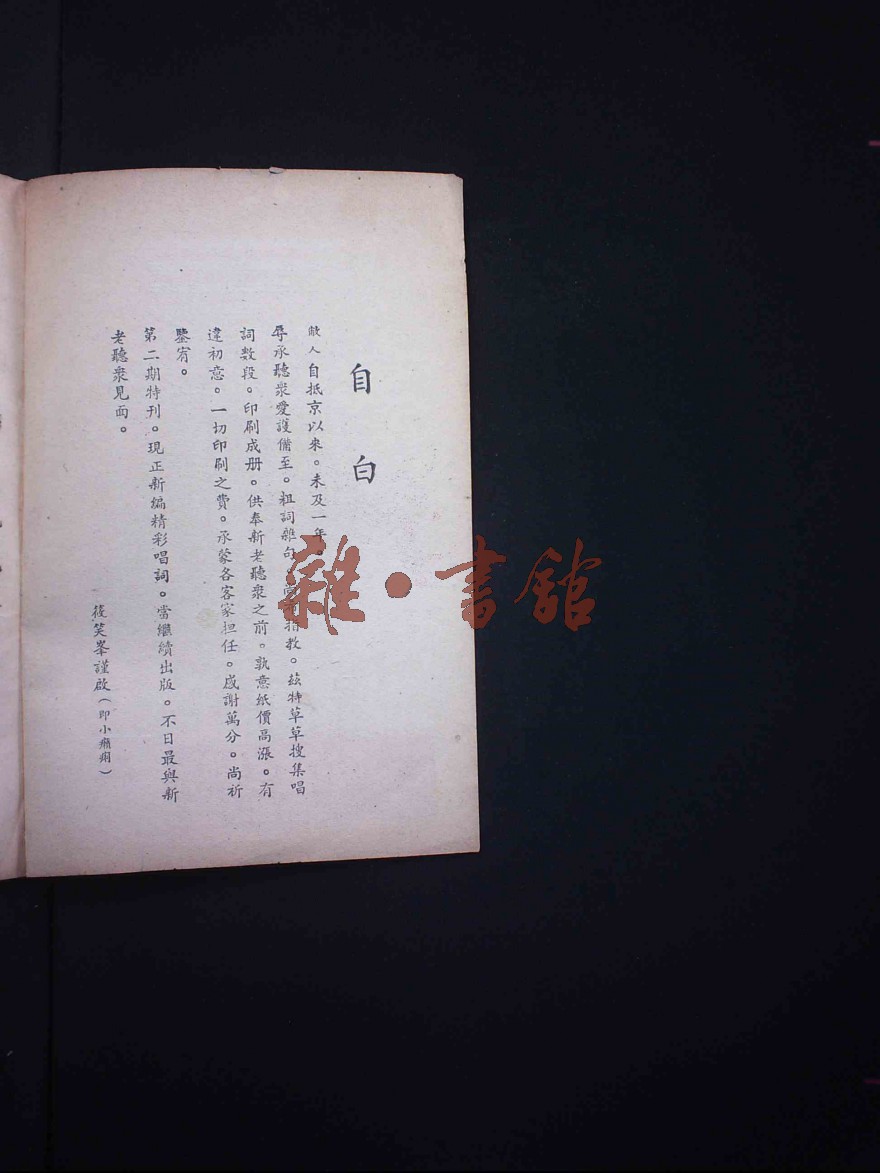 自白
敝人自抵京以來。未及一年。
辱承聽衆愛護備至。粗詞雜句。指教。茲特草草搜集唱
詞数段。印刷成册。供奉新老聽衆之前。孰意紙價高漲。有
違初意。一切印刷之費。承蒙各客家担任。感謝萬分。尚祈
鑒宥。
第二期特刊。現正新編精彩唱詞。當繼續出版。不日最與新
老聽衆見面。
筱笑峯謹啟（即小癩痢）
雜·書館